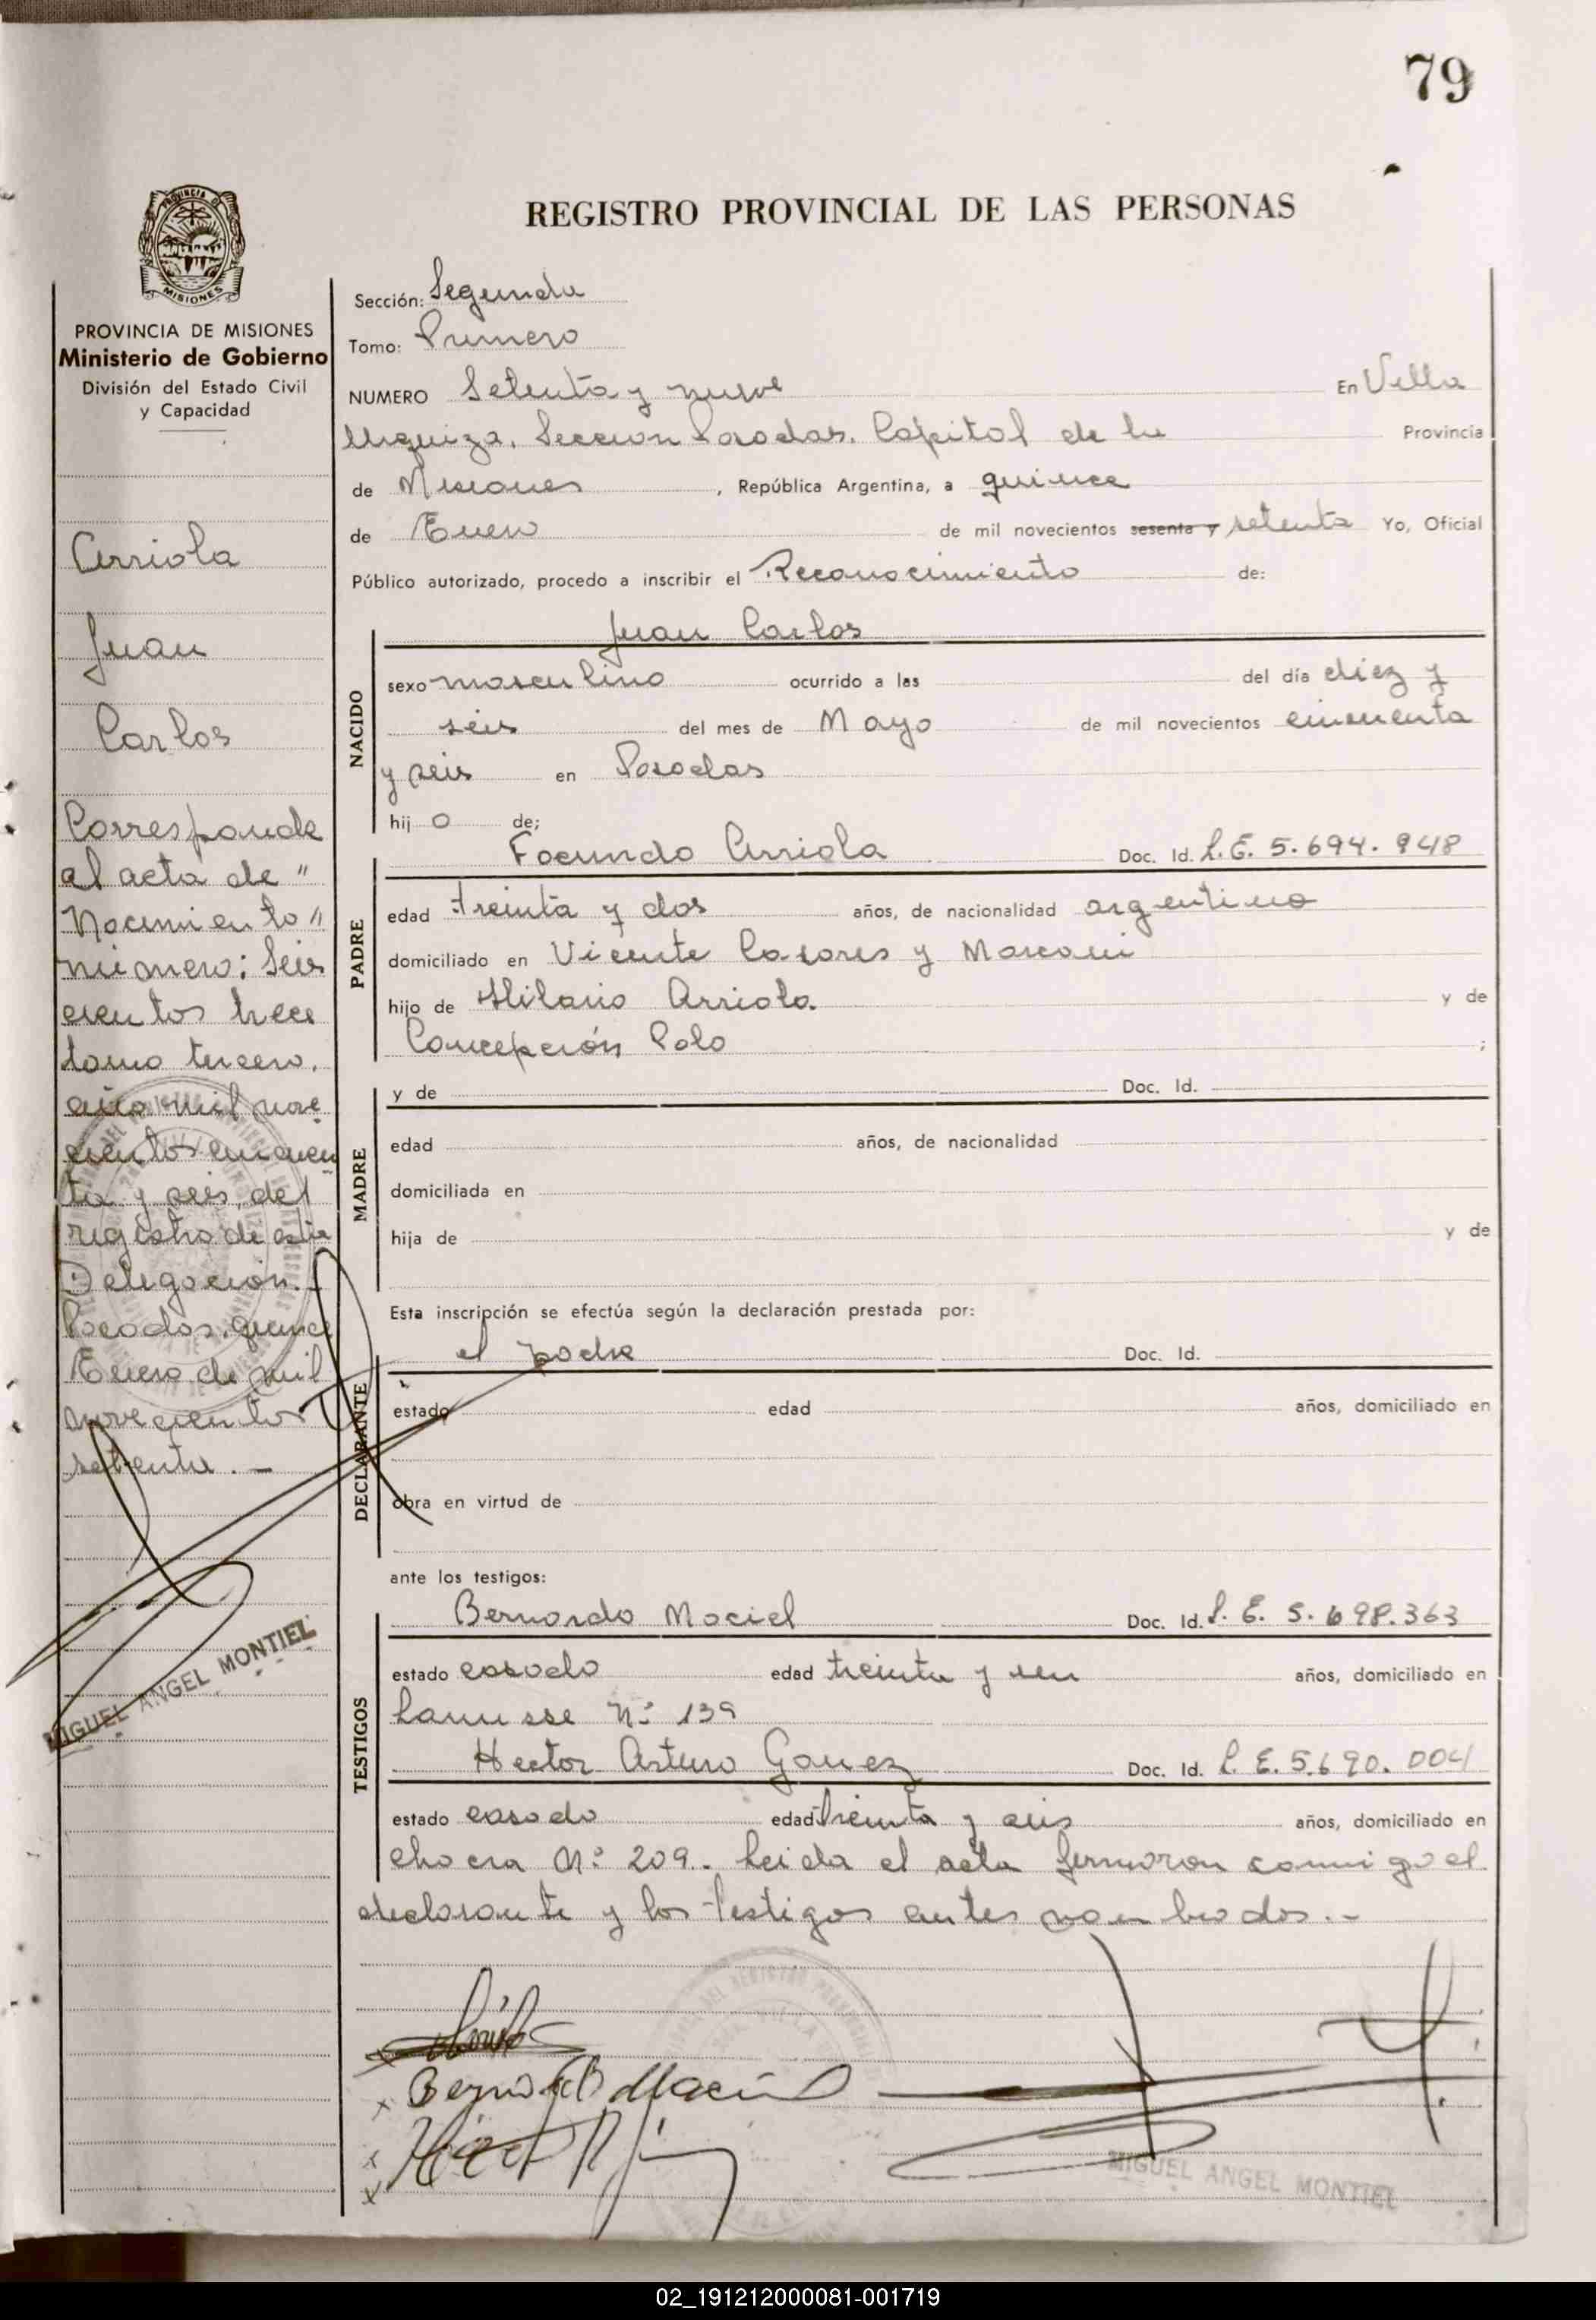 79
REGISTRO PROVINCIAL DE LAS PERSONAS
PROVINCIA DE MISIONES
Ministerio de Gobierno
División del Estado Civil
y Capacidad
Arriola
Juan
Carlos
Corresponde
al acta de "
Nacimiento"
número: Seis
cientos trece
tomo tercero,
año mil nove
cientos cincuen
ta y seis, del
registro de esta
Delegación.
Posadas, quince
Enero de mil
novecientos
setenta.-
MIGUEL ANGEL MONTIEL
Sección: Segunda
Tomo: Primero
NUMERO Setenta y nueve En Villa
Urquiza. Seccion Posadas. Capital de la Provincia
de Misiones, República Argentina, a quince
de Enero de mil novecientos sesenta y setenta Yo, Oficial
Público autorizado, procedo a inscribir el Reconocimiento de:
NACIDO
Juan Carlos
sexo masculino ocurrido a las del día diez y
seis del mes de Mayo de mil novecientos cincuenta
y seis en Posadas
hijo de;
PADRE
Facundo Arriola Doc. Id. L.E. 5.694.948
edad treinta y dos años, de nacionalidad argentino
domiciliado en Vicente Casares y Marconi
hijo de Hilario Arriola y de
Concepción Polo ;
MADRE
y de Doc. Id.
edad años, de nacionalidad
domiciliada en
hija de y de
Esta inscripción se efectúa según la declaración prestada por:
DECLARANTE
el padre Doc. Id.
estado edad años, domiciliado en
obra en virtud de
ante los testigos:
TESTIGOS
Bernardo Maciel Doc. Id. L.E. 5.698.363
estado casado edad treinta y un años, domiciliado en
Lanusse Nº 139
Hector Arturo Gomez Doc. Id. L.E. 5.690.004
estado casado edad treinta y seis años, domiciliado en
chacra Nº 209.- Leida el acta firmaron conmigo el
declarante y los testigos antes nombrados.-
Bernardo Maciel
MIGUEL ANGEL MONTIEL
02_191212000081-001719